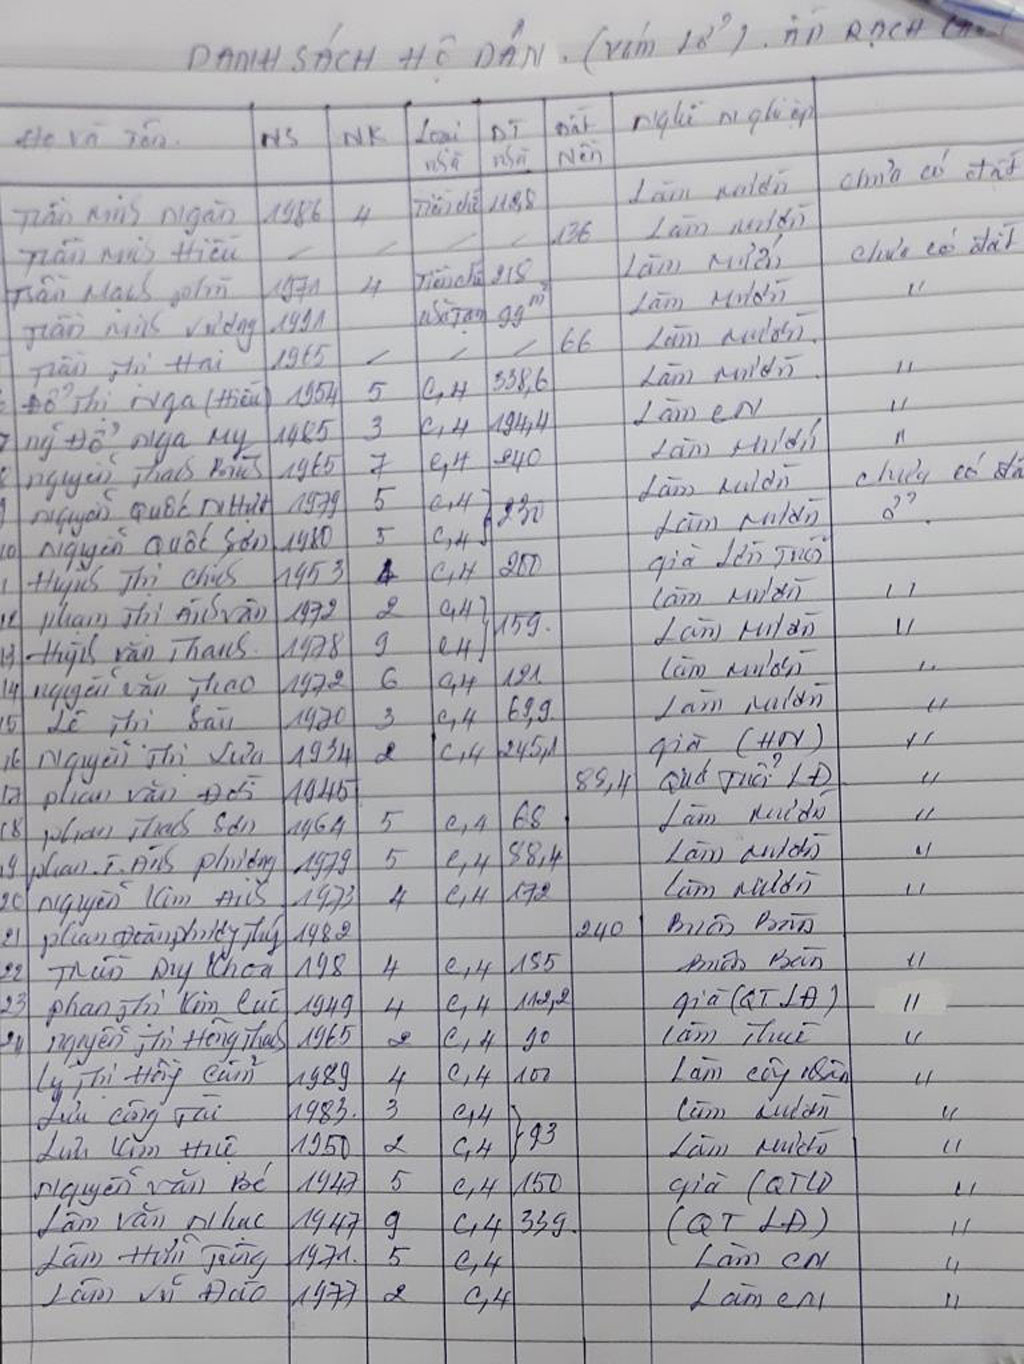 DANH SÁCH HỘ DÂN. (Xóm Lở). ẤP RẠCH
Họ Và Tên. NS NK Loại nhà DT nhà Đất Nền Nghề Nghiệp
Trần Minh Ngân 1986 4 Tiền chế 118,8 Làm Mướn chưa có đất
Trần Minh Hiếu / / / / 136 Làm Mướn
Trần Mạnh 1971 4 Tiền chế 215 Làm Mướn chưa có đất
Trần Minh Vương 1991 Nhà Tạm 99m² Làm Mướn "
Trần Thị Hai 1965 / / / 66 Làm Mướn.
6 Đỗ Thị Nga (Hiếu) 1954 5 C,4 338,6 Làm Mướn "
7 Ng Đỗ Nga My 1985 3 C,4 194,4 Làm CN "
8 Nguyễn Thanh 1965 7 C,4 240 Làm Mướn "
9 Nguyễn Quốc Nhựt 1979 5 C,4 } 230 Làm Mướn chưa có đất
10 Nguyễn Quốc Sơn 1980 5 C,4 Làm Mướn ở.
11 Huỳnh Thị Chính 1953 4 C,4 200 già Lớn Tuổi
12 Phạm Thị Ánh Vân 1972 2 C,4 } 159. Làm Mướn "
13 Huỳnh Văn Thanh. 1978 9 C,4 Làm Mướn "
14 Nguyễn Văn Thao 1972 6 C,4 121 Làm Mướn "
15 Lê Thị Sáu 1970 3 C,4 69,9. Làm Mướn "
16 Nguyễn Thị Lựu 1934 2 C,4 245,1 già (HN) "
17 Phan Văn Đời 1945 89,4 Quá Tuổi LĐ "
18 Phan Thanh Sơn 1964 5 C,4 68 Làm Mướn "
19 Phan.T.Ánh Phương 1979 5 C,4 88,4 Làm Mướn "
20 Nguyễn Kim Anh 1973 4 C,4 172 Làm Mướn "
21 Phan Đoàn Phương Thùy 1982 240 Buôn Bán
22 Trần Duy Khoa 198 4 C,4 155 Buôn Bán "
23 Phan Thị Kim Cúc 1949 4 C,4 112,2 già (QT LĐ) "
24 Nguyễn Thị Hồng Thanh 1965 2 C,4 90 Làm Thuê "
Lý Thị Hồng Cẩm 1989 4 C,4 100 Làm công Nhân "
Lưu Công Tài 1983. 3 C,4 } 93 Làm Mướn "
Lưu Kim Huệ 1950 2 C,4 Làm Mướn "
Nguyễn Văn Bé 1947 5 C,4 150 già (QTLĐ "
Lâm Văn Nhạc 1947 9 C,4 339. (QT LĐ) "
Lâm Hữu Tùng 1971. 5 C,4 Làm CN "
Lâm Vũ Đào 1977 2 C,4 Làm CN "